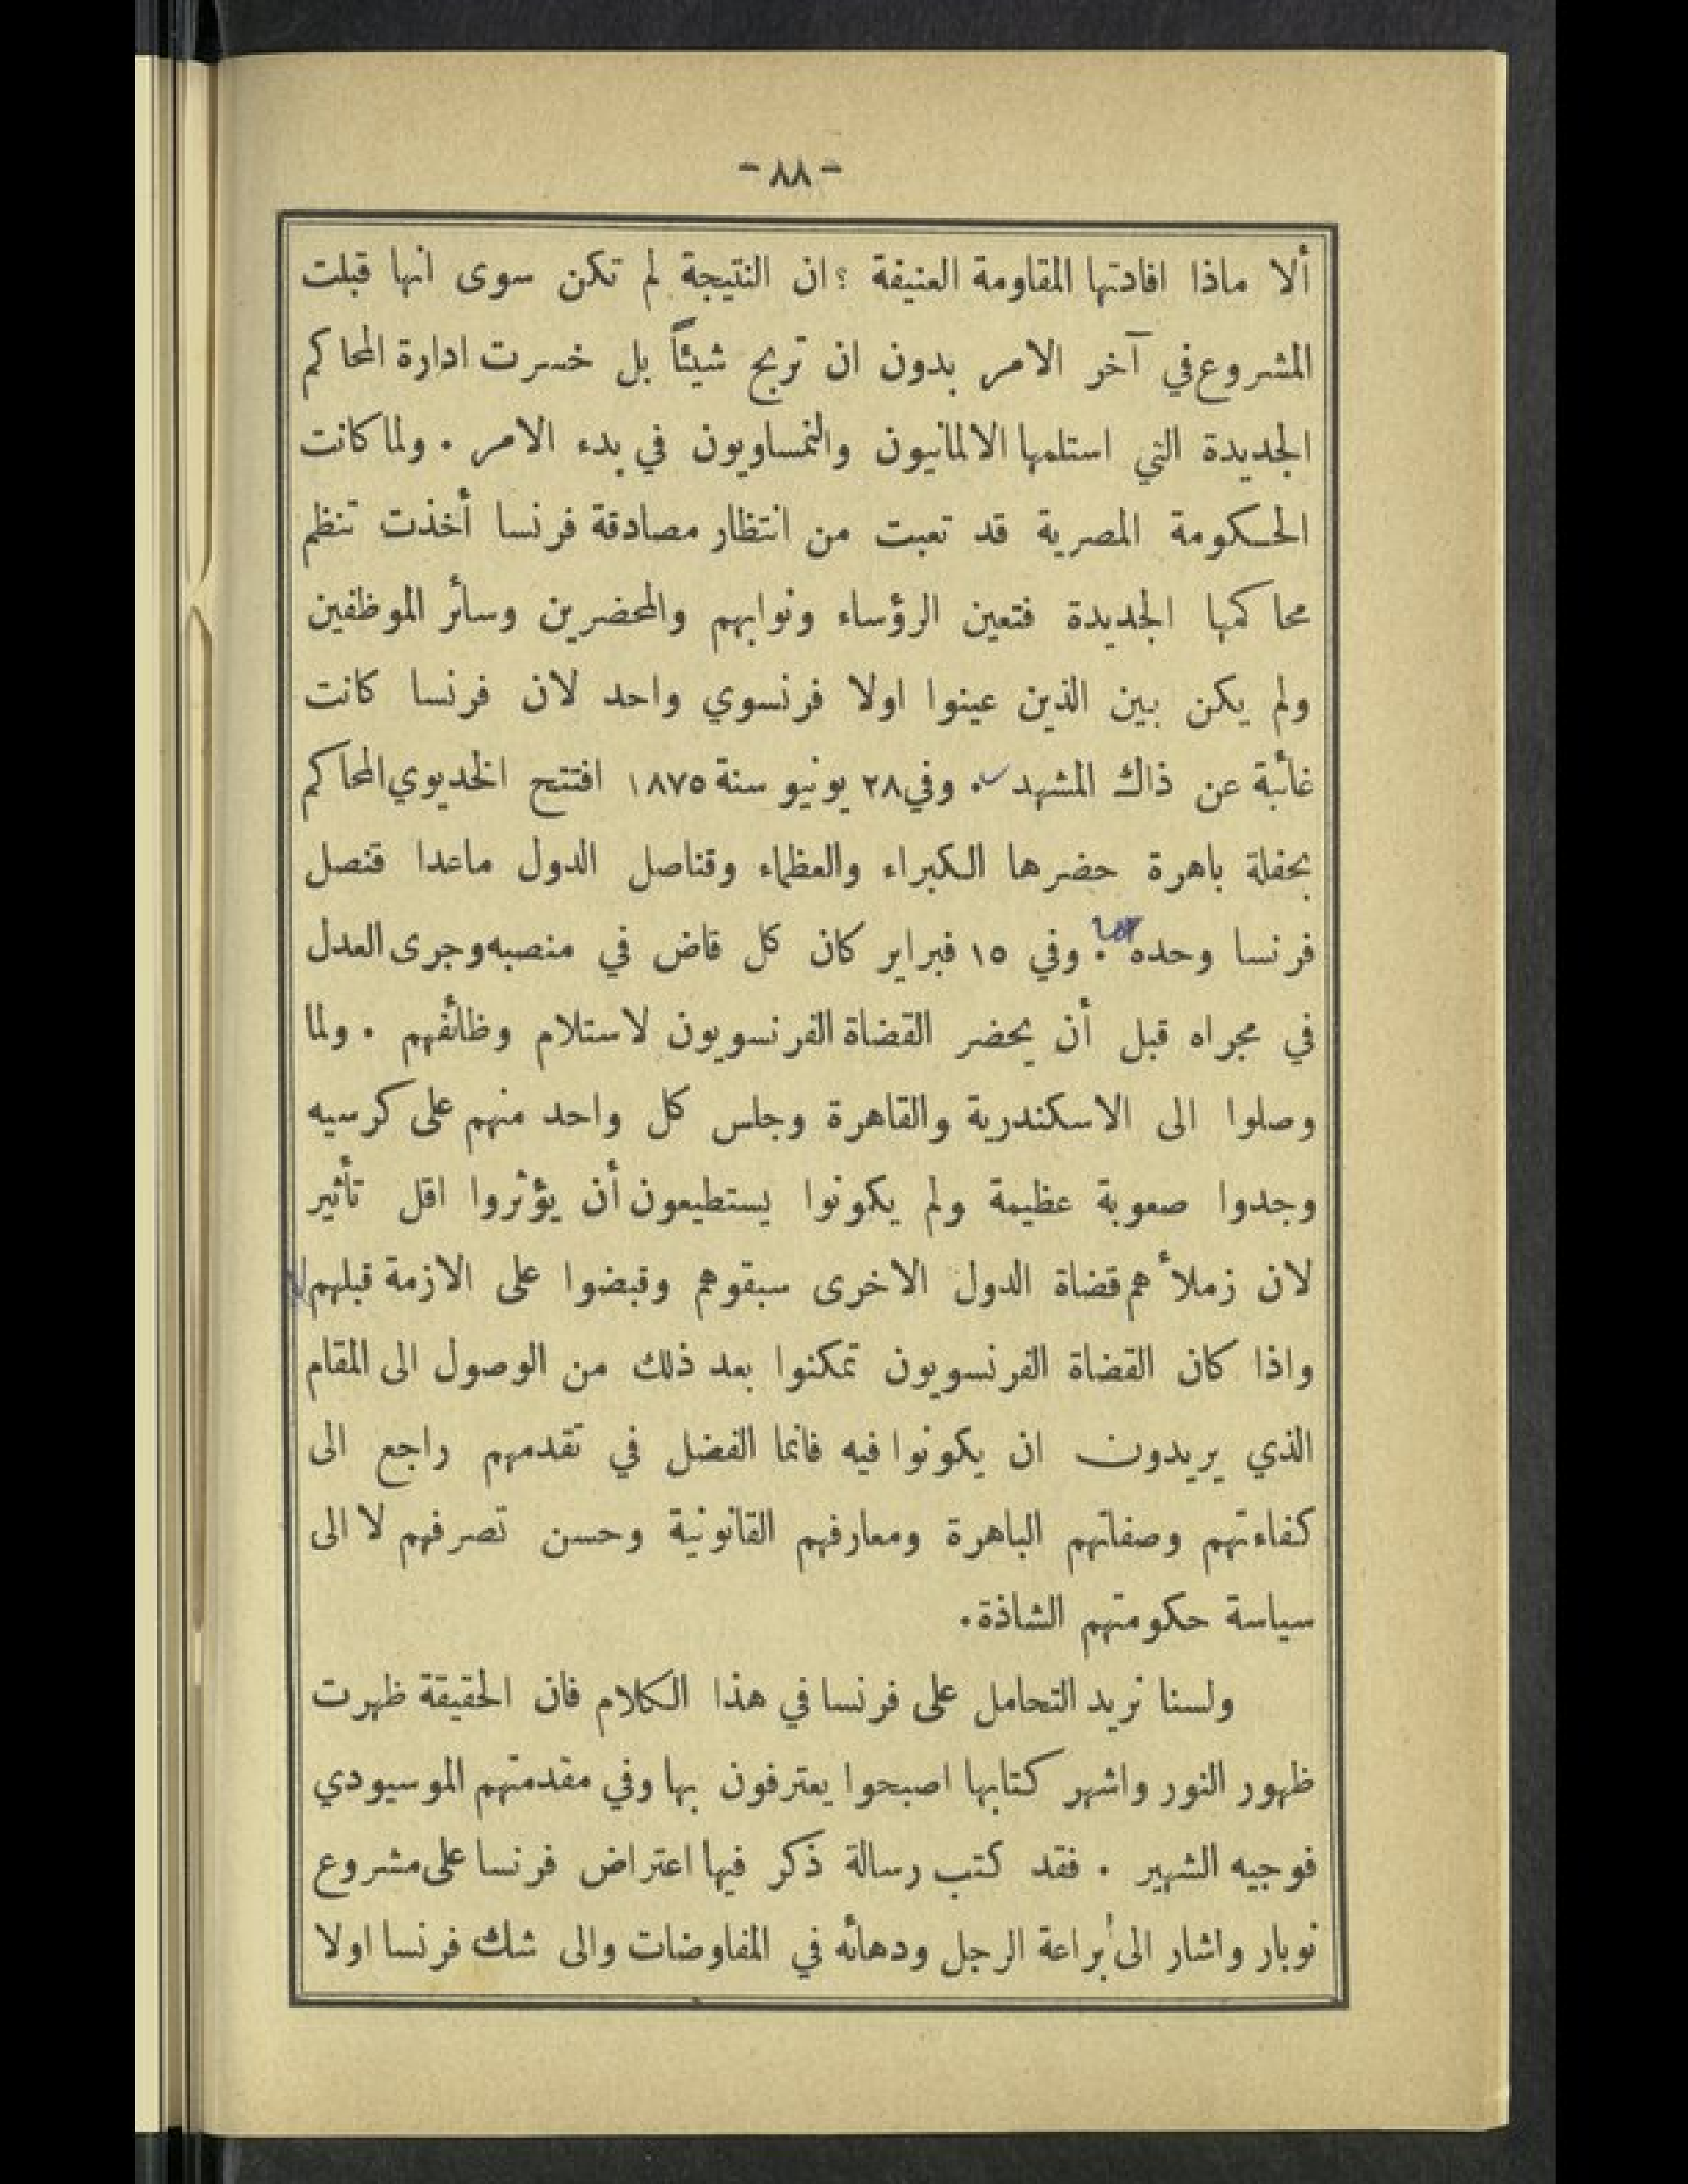 - ٨٨ -
ألا ماذا افادتها المقاومة العنيفة ؟ ان النتيجة لم تكن سوى انها قبلت
المشروع في آخر الامر بدون ان تربح شيئاً بل خسرت ادارة المحاكم
الجديدة التي استلمها الالمانيون والنمساويون في بدء الامر . ولما كانت
الحكومة المصرية قد تعبت من انتظار مصادقة فرنسا أخذت تنظم
محاكمها الجديدة فتعين الرؤساء ونوابهم والمحضرين وسائر الموظفين
ولم يكن بين الذين عينوا اولا فرنسوي واحد لان فرنسا كانت
غائبة عن ذاك المشهد . وفي ٢٨ يونيو سنة ١٨٧٥ افتتح الخديوي المحاكم
بحفلة باهرة حضرها الكبراء والعظماء وقناصل الدول ماعدا قنصل
فرنسا وحده . وفي ١٥ فبراير كان كل قاض في منصبه وجرى العدل
في مجراه قبل أن يحضر القضاة الفرنسويون لاستلام وظائفهم . ولما
وصلوا الى الاسكندرية والقاهرة وجلس كل واحد منهم على كرسيه
وجدوا صعوبة عظيمة ولم يكونوا يستطيعون أن يؤثروا اقل تأثير
لان زملأهم قضاة الدول الاخرى سبقوهم وقبضوا على الازمة قبلهم
واذا كان القضاة الفرنسويون تمكنوا بعد ذلك من الوصول الى المقام
الذي يريدون ان يكونوا فيه فانما الفضل في تقدمهم راجع الى
كفاءتهم وصفاتهم الباهرة ومعارفهم القانونية وحسن تصرفهم لا الى
سياسة حكومتهم الشاذة .
ولسنا نريد التحامل على فرنسا في هذا الكلام فان الحقيقة ظهرت
ظهور النور واشهر كتابها اصبحوا يعترفون بها وفي مقدمتهم الموسيودي
فوجيه الشهير . فقد كتب رسالة ذكر فيها اعتراض فرنسا على مشروع
نوبار واشار الى براعة الرجل ودهائه في المفاوضات والى شك فرنسا اولا